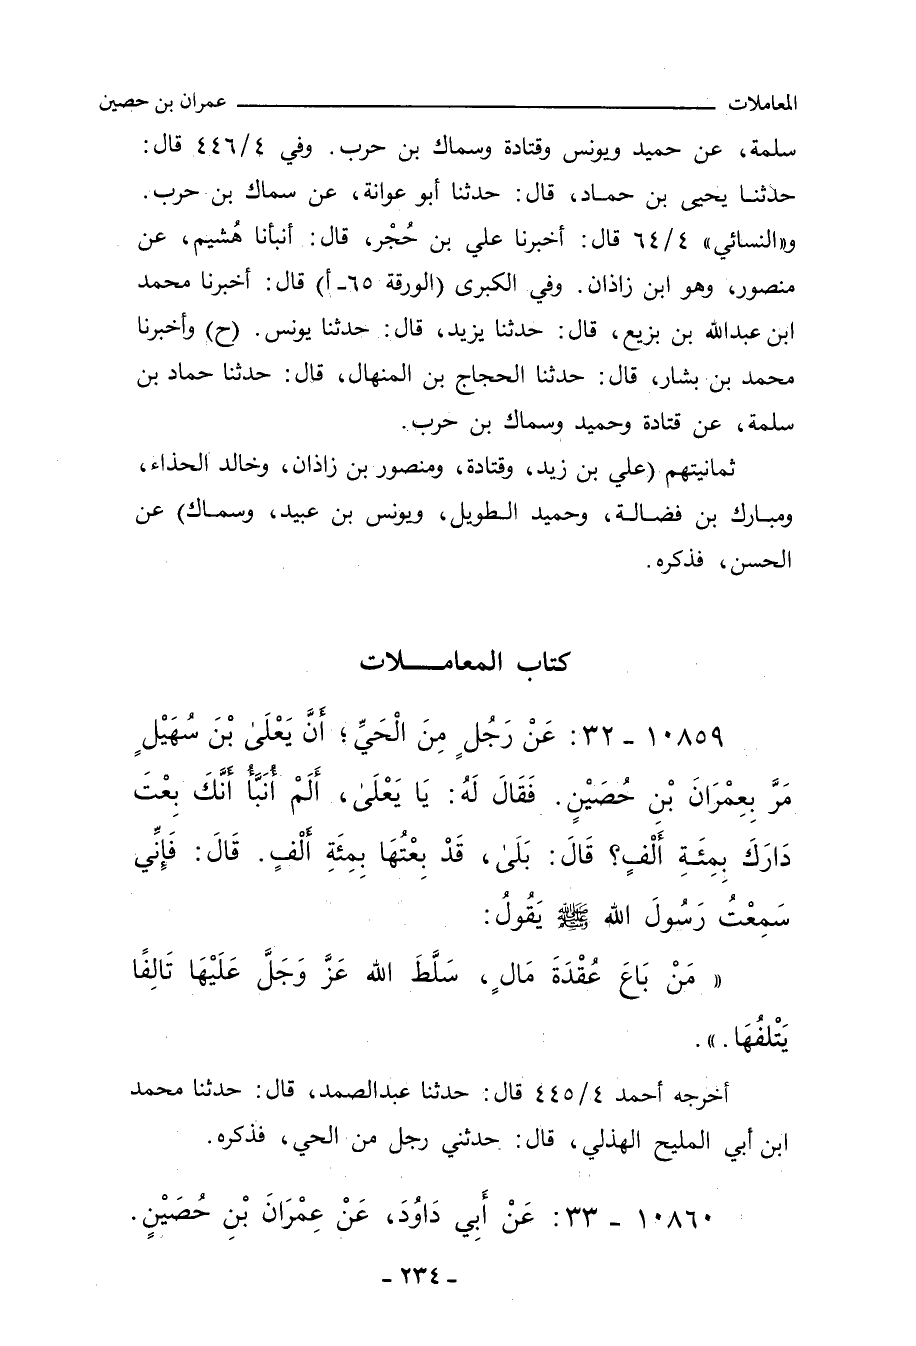 المعاملات ــــــــــــــــــــ عمران بن حصين
سلمة، عن حميد ويونس وقتادة وسماك بن حرب. وفي ٤/٤٤٦ قال:
حدثنا يحيى بن حماد، قال: حدثنا أبو عوانة، عن سماك بن حرب.
و«النسائي» ٤/٦٤ قال: أخبرنا علي بن حُجْر، قال: أنبأنا هُشيم، عن
منصور، وهو ابن زاذان. وفي الكبرى (الورقة ٦٥ـ أ) قال: أخبرنا محمد
ابن عبدالله بن بزيع، قال: حدثنا يزيد، قال: حدثنا يونس. (ح) وأخبرنا
محمد بن بشار، قال: حدثنا الحجاج بن المنهال، قال: حدثنا حماد بن
سلمة، عن قتادة وحميد وسماك بن حرب.
ثمانيتهم (علي بن زيد، وقتادة، ومنصور بن زاذان، وخالد الحذاء،
ومبارك بن فضالة، وحميد الطويل، ويونس بن عبيد، وسماك) عن
الحسن، فذكره.
كتاب المعامـــلات
١٠٨٥٩ ـ ٣٢: عَنْ رَجُلٍ مِنَ الْحَيِّ؛ أَنَّ يَعْلَىٰ بْنَ سُهَيْلٍ
مَرَّ بِعِمْرَانَ بْنِ حُصَيْنٍ. فَقَالَ لَهُ: يَا يَعْلَىٰ، أَلَمْ أُنَبَّأْ أَنَّكَ بِعْتَ
دَارَكَ بِمِئَةِ أَلْفٍ؟ قَالَ: بَلَىٰ، قَدْ بِعْتُهَا بِمِئَةِ أَلْفٍ. قَالَ: فَإِنِّي
سَمِعْتُ رَسُولَ الله ﷺ يَقُولُ:
« مَنْ بَاعَ عُقْدَةَ مَالٍ، سَلَّطَ الله عَزَّ وَجَلَّ عَلَيْهَا تَالِفًا
يَتْلُفُهَا. ».
أخرجه أحمد ٤/٤٤٥ قال: حدثنا عبدالصمد، قال: حدثنا محمد
ابن أبي المليح الهذلي، قال: حدثني رجل من الحي، فذكره.
١٠٨٦٠ ـ ٣٣: عَنْ أَبِي دَاوُدَ، عَنْ عِمْرَانَ بْنِ حُصَيْنٍ.
ـ ٢٣٤ ـ